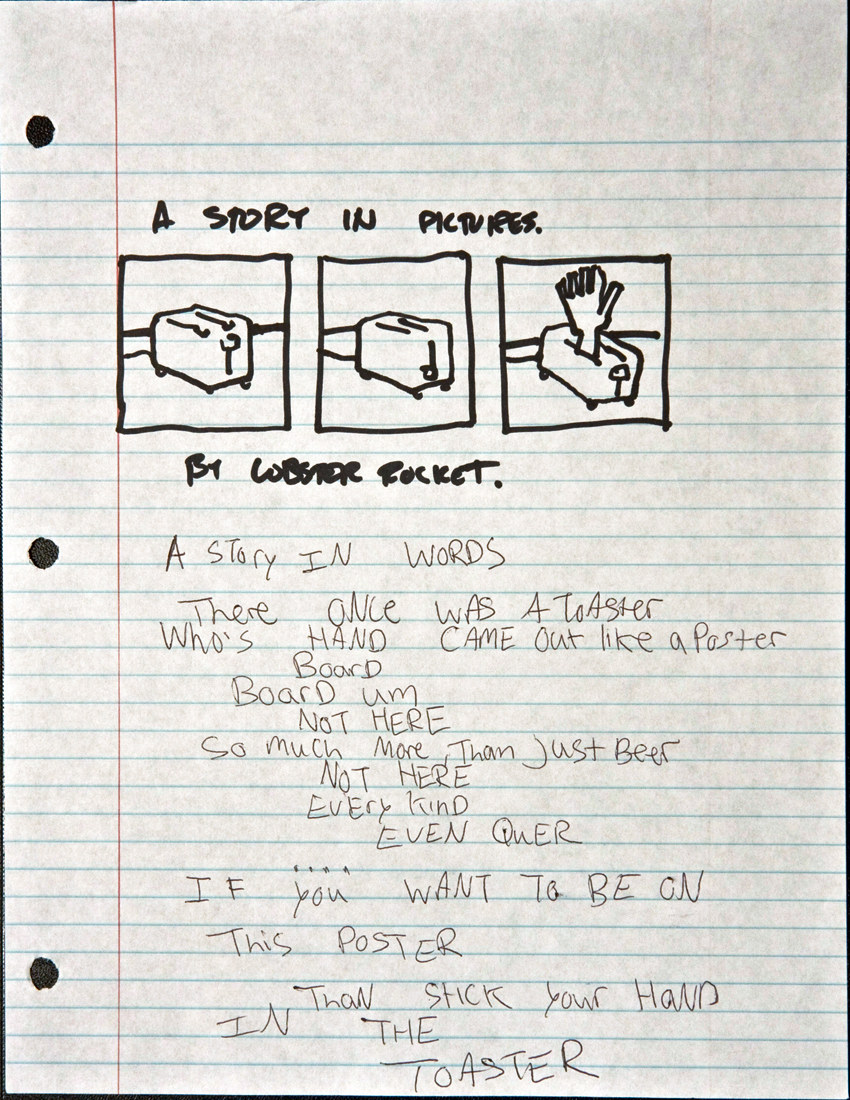 A STORY IN PICTURES.
BY LOBSTER ROCKET.
A STOry IN WORDS
There ONCe WAS A ToASter
WHO'S HAND CAME Out like a Poster
BoarD
BoarD um
NOT HERE
So much More Than just Beer
NOT HERE
EVEry kinD
EVEN QuER
IF you WANT To BE ON
This POSTER
THaN STICK your HaND
IN THE
TOASTER